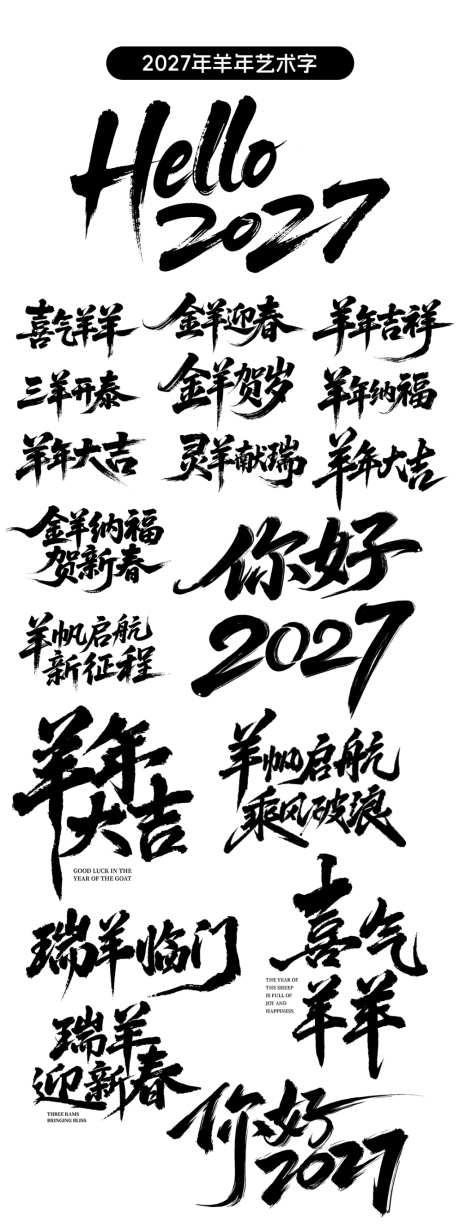 2027年羊年艺术字
Hello
2027
喜气羊羊
金羊迎春
羊年吉祥
三羊开泰
金羊贺岁
羊年纳福
羊年大吉
灵羊献瑞
羊年大吉
金羊纳福
贺新春
你好
2027
羊帆启航
新征程
羊年
大吉
GOOD LUCK IN THE
YEAR OF THE GOAT
羊帆启航
乘风破浪
喜气
羊羊
THE YEAR OF
THE SHEEP
IS FULL OF
JOY AND
HAPPINESS
瑞羊临门
瑞羊
迎新春
THREE RAMS
BRINGING BLISS
你好
2027